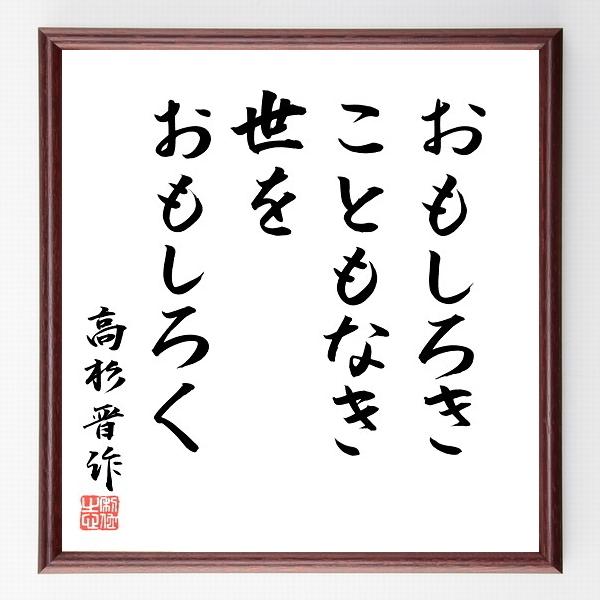 おもしろき
こともなき
世を
おもしろく
高杉晋作